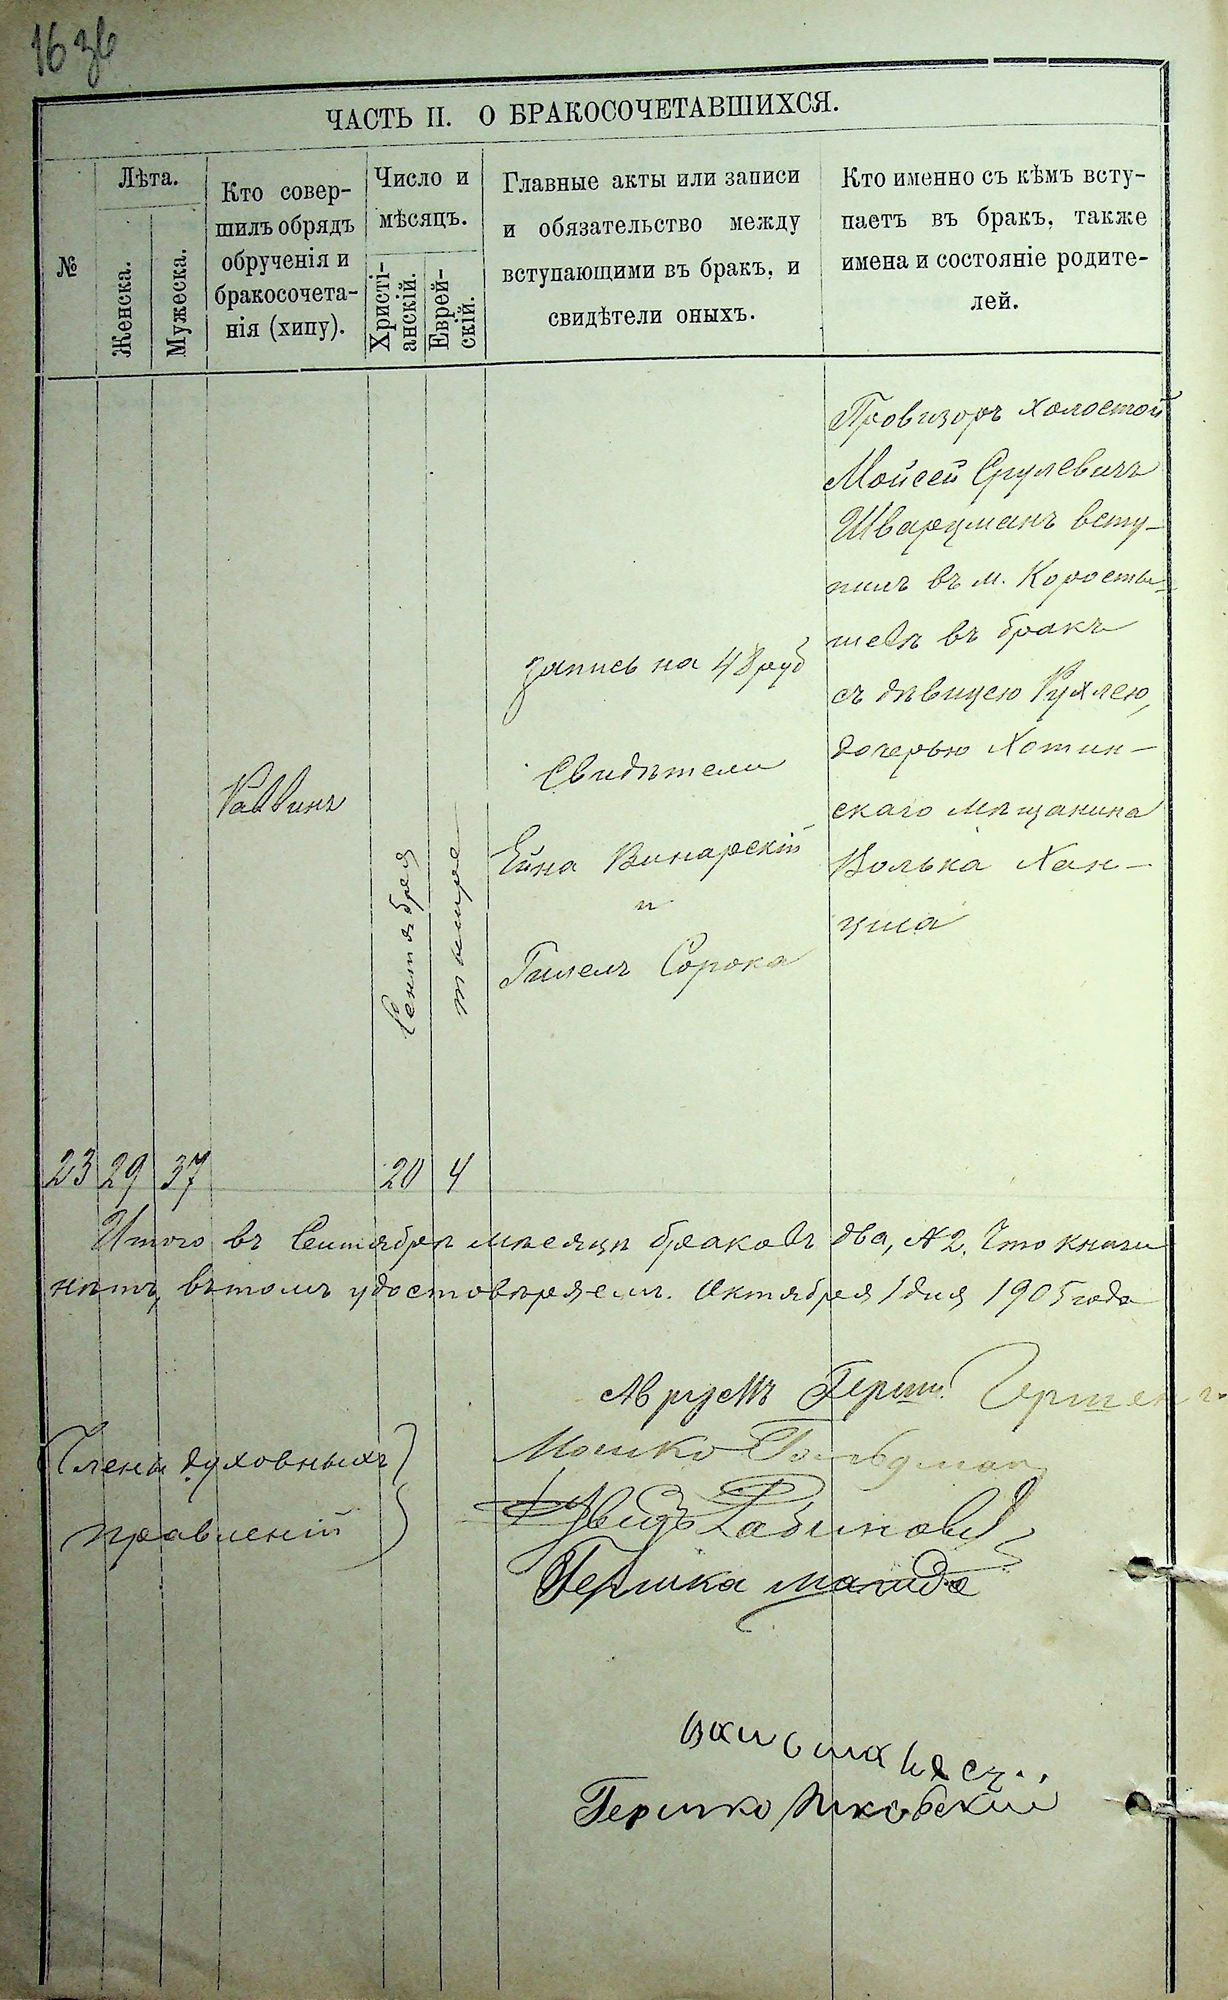 16 зв
ЧАСТЬ II. О БРАКОСОЧЕТАВШИХСЯ.
№
Лѣта.
Женска.
Мужеска.
Кто совер-
шилъ обрядъ
обрученія и
бракосочета-
нія (хипу).
Число и
мѣсяцъ.
Христі-
анскій.
Еврей-
скій.
Главные акты или записи
и обязательство между
вступающими въ бракъ, и
свидѣтели оныхъ.
Кто именно съ кѣмъ всту-
паетъ въ бракъ, также
имена и состояніе родите-
лей.
23
29
37
Раввинъ
Сентября
20
тишре
4
запись на 48 руб
Свидѣтели
Винарскій
и
Гилелъ Сорока
Провизоръ холостой
Мойсей Срулевичъ
Шварцманъ всту-
пилъ въ м. Коросты-
шевѣ въ бракъ
съ дѣвицею Рухлею,
дочерью Хотин-
скаго мѣщанина
Волька Хан-
циса
Итого въ Сентябрѣ мѣсяцѣ браковъ два, №2. Что книги
нѣтъ, въ томъ удостовѣряемъ. Октября 1 дня 1905 года
Члены духовныхъ
правленій
Мошко Гольдман
Рабинович
Гершка
Гершко